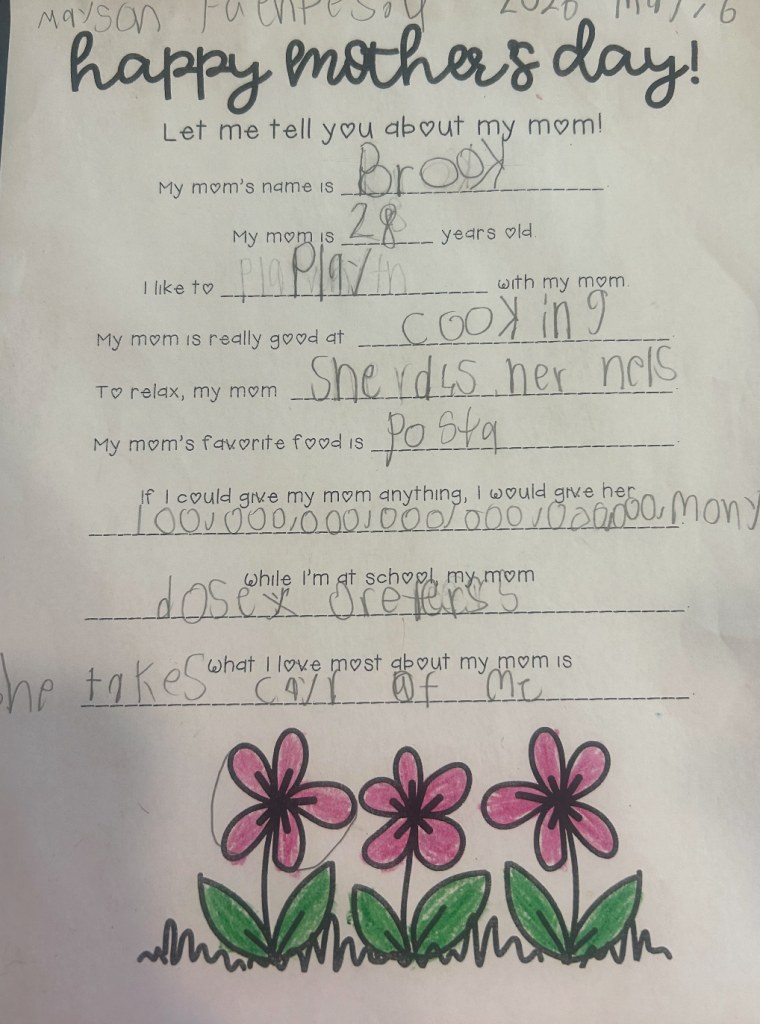 Mayson 2026 May, 6
happy mother's day!
Let me tell you about my mom!
My mom's name is Brook
My mom is 28 years old.
I like to Play with my mom.
My mom is really good at cooking
To relax, my mom She rdis her nels
My mom's favorite food is Posta
If I could give my mom anything, I would give her
100,000,000,000,000,000,000, mony
While I'm at school, my mom
dosey
What I love most about my mom is
he takes cayr of me